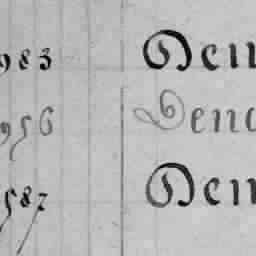 983 Den
956 Dene
587 Den